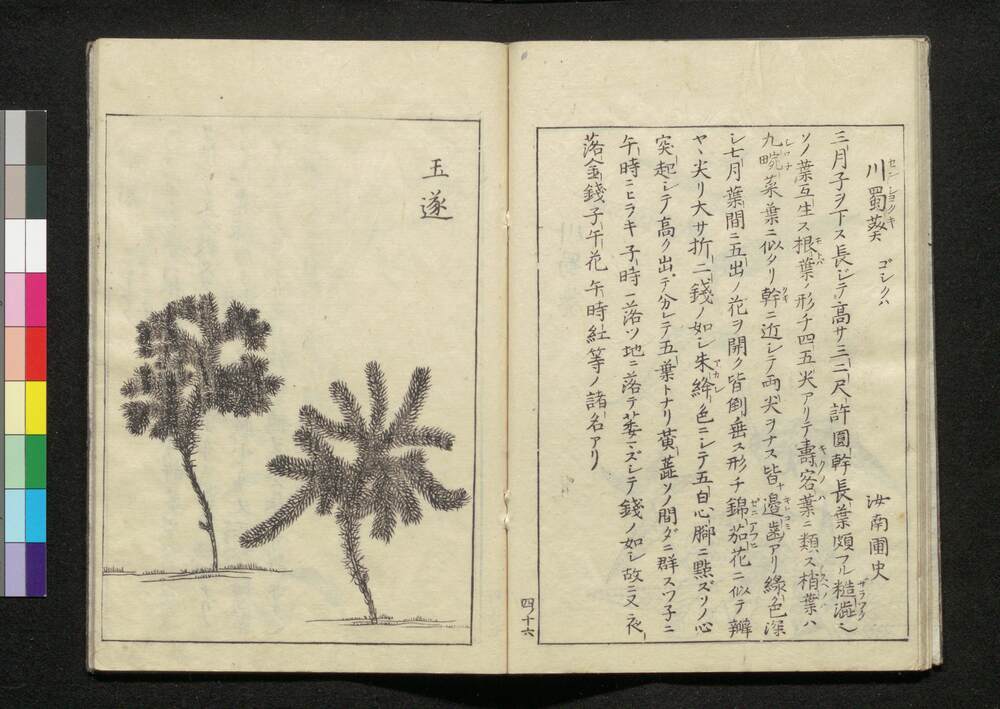 川蜀葵 センシヨクキ ゴシクハ 汝南圃史
三月子ヲ下ス長ジテ高サ三二尺許圓幹長葉頗フル糙澁シ
ソノ葉互生ス根葉ノ形チ四五尖アリテ壽客葉ニ類ス梢葉ハ
九畹菜葉ニ似タリ幹ニ近シテ両尖ヲナス皆邉歯アリ緑色深
シ七月葉間ニ五出ノ花ヲ開ク皆倒垂ス形チ錦茄花ニ似テ瓣
ヤヽ尖リ大サ折二錢ノ如シ朱絳色ニシテ五白心脚ニ點ズソノ心
突起シテ高ク出テ分レテ五葉トナリ黄蘂ソノ間ダニ群スツ子ニ
午時ニヒラキ子時ニ落ツ地ニ落テ萎マズシテ錢ノ如シ故ニ又夜
落金錢子午花午時紅等ノ諸名アリ
四ノ十六
玉遂